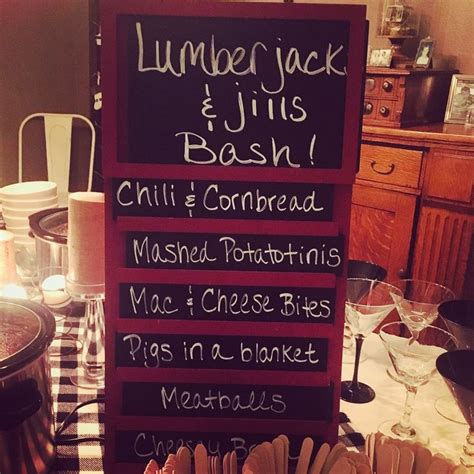 Lumberjack
& jills
Bash!
Chili & Cornbread
Mashed Potatotinis
Mac & Cheese Bites
Pigs in a blanket
Meatballs
Cheesy